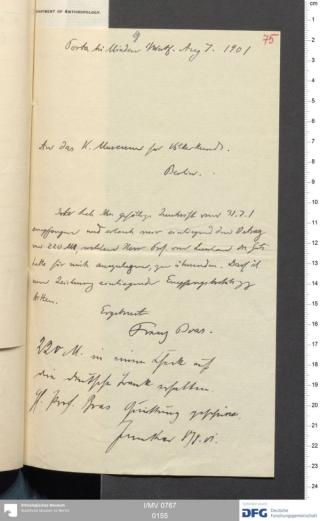 DEPARTMENT OF ANTHROPOLOGY.
9
75
Porta bei Minden Westf. Aug 7. 1901
An das K. Museum für Völkerkunde.
Berlin.
Ich habe Ihre gefällige Zuschrift vom 31.7.1
empfangen und erlaube mir einliegend den Betrag
von 220 M, welchen Herr Prof. von Luschan die Güte
hatte für mich auszulegen, zu übersenden. Darf ich
um Zeichnung einliegender
bitten.
Ergebenst
Franz Boas.
220 M. in einem Check auf
die deutsche Bank erhalten
Prof. Boas Quittung
I/MV 0767
0155
Ethnologisches Museum
Staatliche Museen zu Berlin
DFG Deutsche
Forschungsgemeinschaft
cm
1
2
3
4
5
6
7
8
9
10
11
12
13
14
15
16
17
18
19
20
21
22
23
24